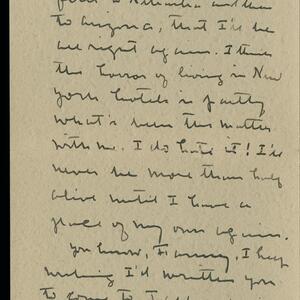 to Arizona, that I'll be
all right again. I think
the horror of living in New
York hotels is partly
what's been the matter
with me. I do hate it! I'll
never be more than half
alive until I have a
place of my own again.
You know, I keep
wishing I'd written you
to come to